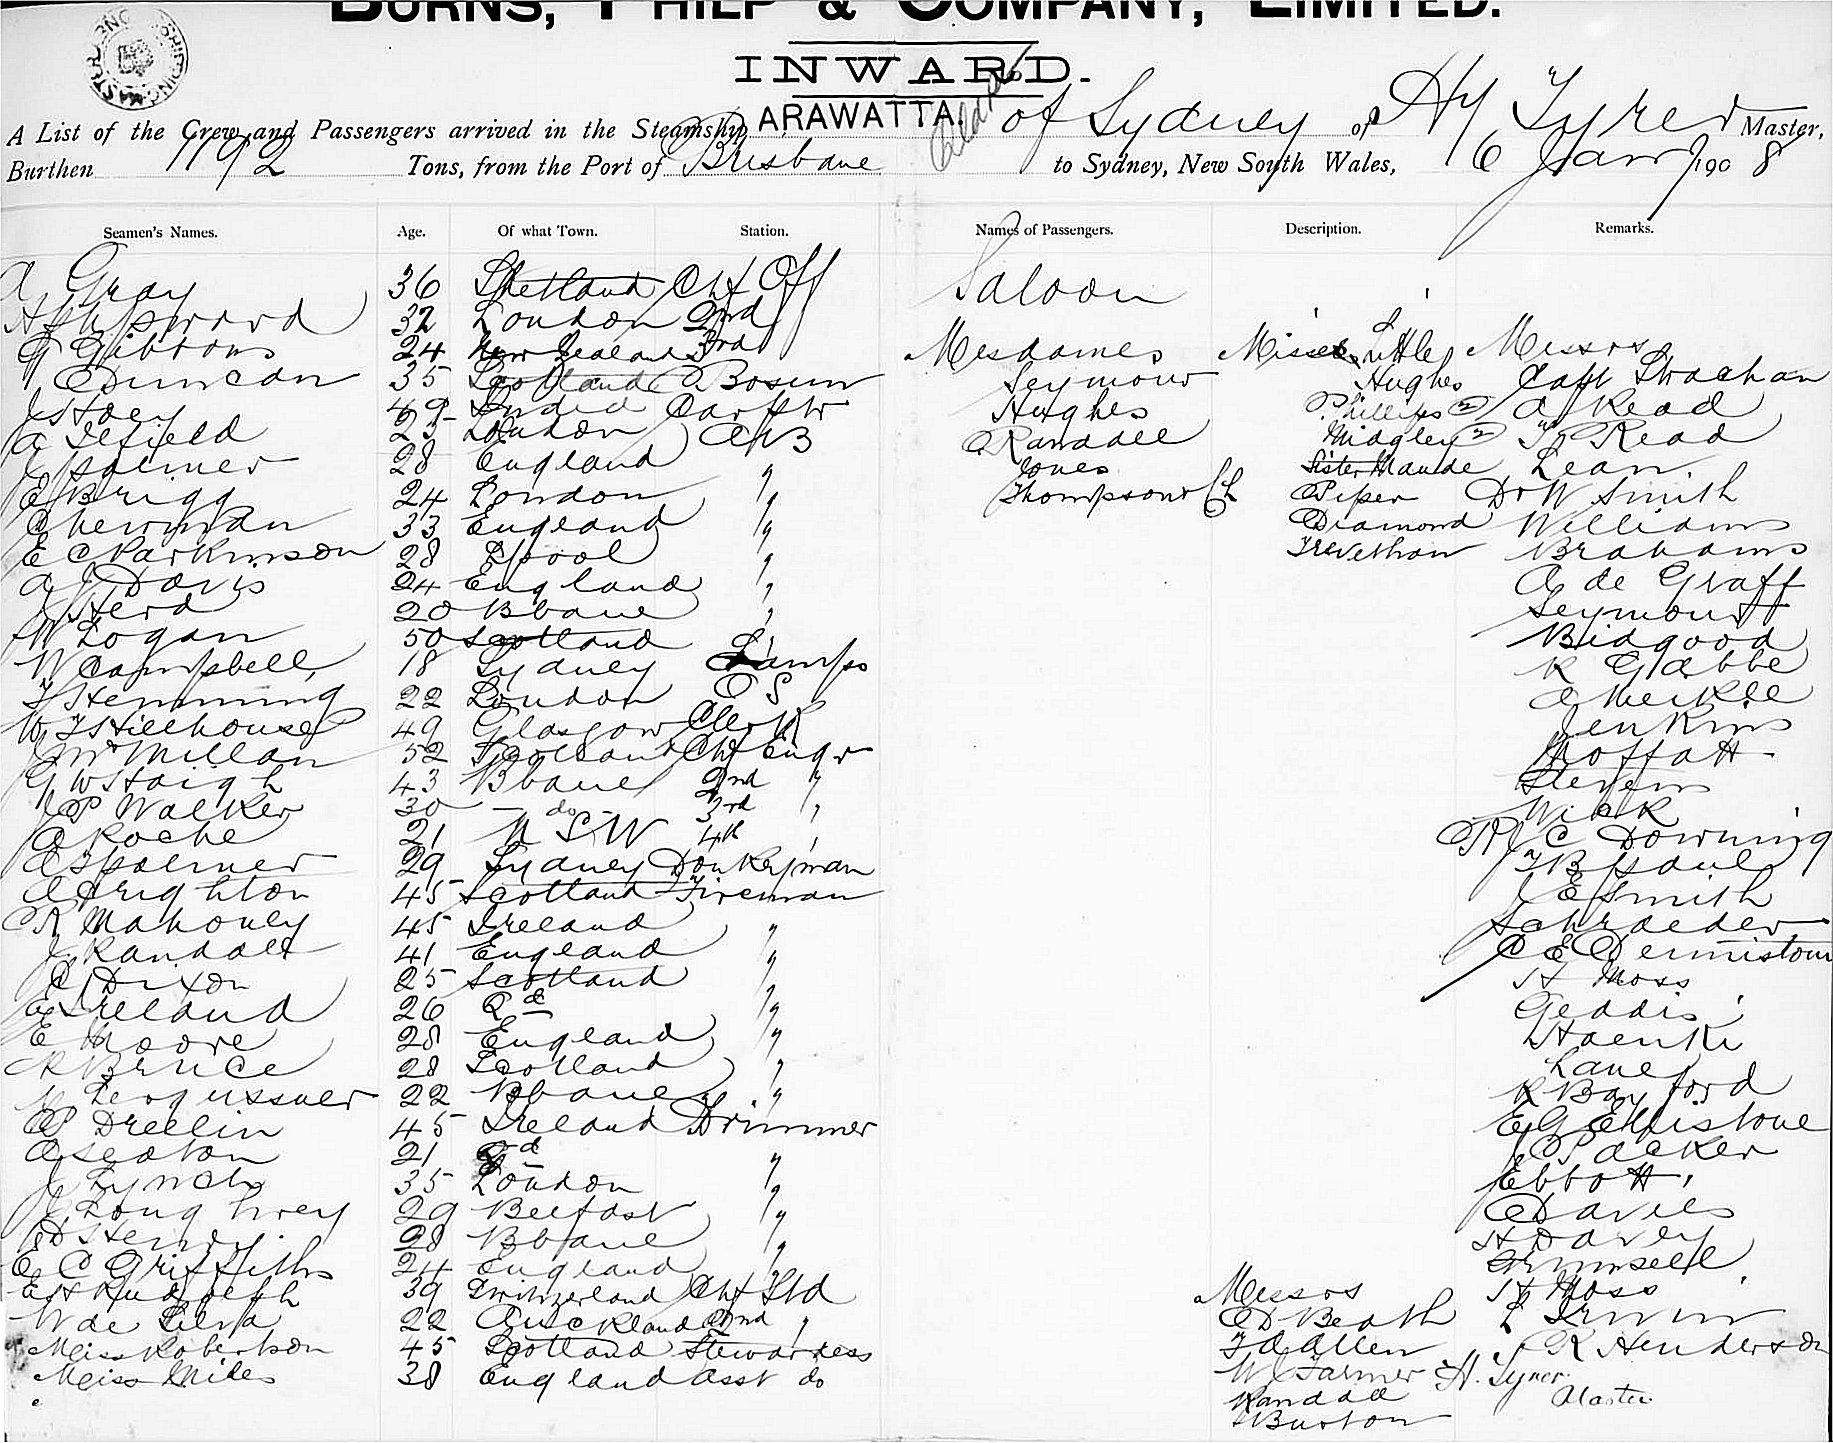 BURNS, PHILP & COMPANY, LIMITED.
INWARD.
A List of the Crew and Passengers arrived in the Steamship ARAWATTA. of Sydney of Hy Tyrer Master,
Burthen 1192 Tons, from the Port of Brisbane to Sydney, New South Wales, 6 Jany 1908
Seamen's Names. Age. Of what Town. Station. Names of Passengers. Description. Remarks.
A Gray 36 Shetland Chf Off
H Shepward 32 London 2nd
G Gibbons 24 New Zealand 3rd
Duncan 35 Scotland Bosun
J Storey 49 Carptr
A Ilfield 25 London AB
J Palmer 28 England "
E Brigg 24 London "
33 England "
E C Parkinson 28 L'pool
A J Davis 24 England "
J Herd 20 Bbane "
W Logan 50 Scotland "
W Campbell 18 Sydney Lamps
T Hemming 22 London O S
W T Hillhouse 49 Glasgow Clerk
J McMillan 52 Scotland Chf Engr
G W Haigh 43 Bbane 2nd "
J P Walker 30 - do - 3rd "
A Roche 21 N S W 4th "
29 Sydney Donkeyman
Crighton 45 Scotland Fireman
R Mahoney 45 Ireland "
J Randall 41 England "
C Dixon 25 Scotland "
E Ireland 26 "
E Moore 28 England "
R Bruce 28 Scotland "
22 Bbane "
P Dreelin 45 Ireland Trimmer
A Seaton 21 "
J Lynch 35 London "
J Loughrey 29 Belfast "
D Henry 28 Bbane "
E C Griffiths 24 England "
E H Rudolph 39 Switzerland Chf Std
W de Silva 22 Auckland 2nd "
Miss Robertson 45 Scotland Stewardess
Miss Miles 38 England Asst do
Saloon
Mesdames
Seymour
Hughes
Randall
Jones
Thompson & Ch
Misses Little
Hughes
Phillips 2
Midgley 2
Sister Maude
Piper
Diamond
Trevethan
Messrs
Capt Strachan
A Read
T R Read
Lean
Dr W Smith
Williams
Brahams
A de Graff
Seymour
Bidgood
R Gabbe
A Meikle
Jenkins
Moffatt
Stevens
Wick
R J C Downing
T B Saul
J E Smith
Schraeder
C E Dennistoun
H Moss
Geddis
Haenke
Lane
R Bayford
E G Ellistone
J Packer
Ebbott
Davies
H Davey
Grimsell
H Moss
L Irwin
J R Henderson
Messrs
E D Beath
T A Allen
W Farmer
Randall
Burton
H. Tyrer
Master